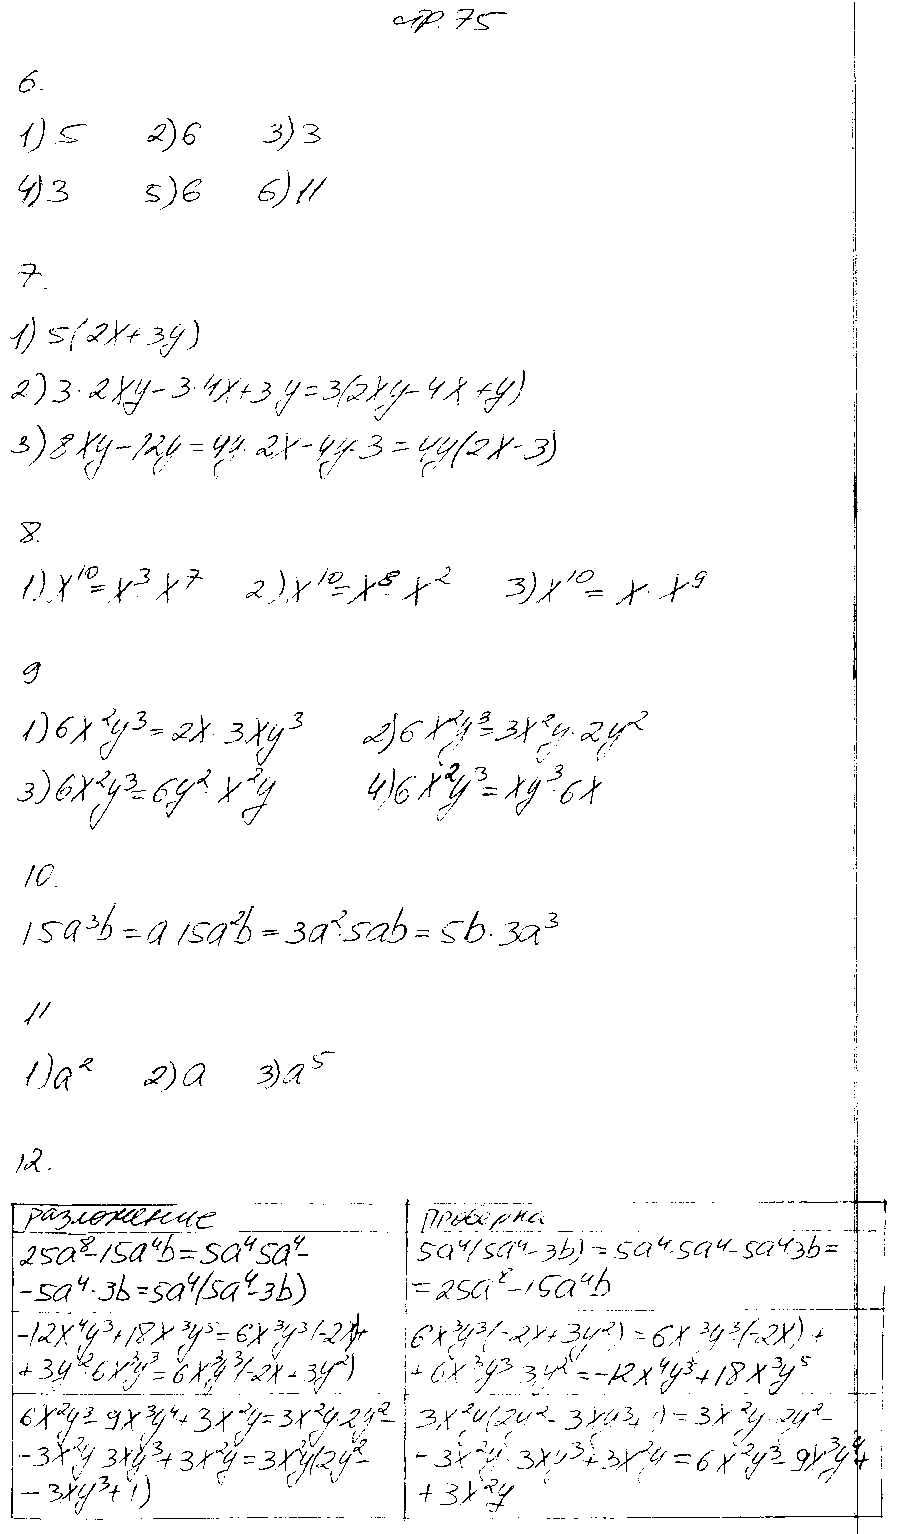 стр. 75
6.
1) 5 2) 6 3) 3
4) 3 5) 6 6) 11
7.
1) 5(2x+3y)
2) 3·2xy-3·4x+3y=3(2xy-4x+y)
3) 8xy-12y=4y·2x-4y·3=4y(2x-3)
8.
1) x¹⁰=x³·x⁷ 2) x¹⁰=x⁸·x² 3) x¹⁰=x·x⁹
9
1) 6x²y³=2x·3xy³ 2) 6x²y³=3x²y·2y²
3) 6x²y³=6y²·x²y 4) 6x²y³=xy³·6x
10.
15a³b=a 15a²b=3a²·5ab=5b·3a³
11
1) a² 2) a 3) a⁵
12.
разложение
проверка
25a⁸-15a⁴b=5a⁴5a⁴-
-5a⁴·3b=5a⁴(5a⁴-3b)
5a⁴(5a⁴-3b)=5a⁴·5a⁴-5a⁴3b=
=25a⁸-15a⁴b
-12x⁴y³+18x³y⁵=6x³y³(-2x)+
+3y²·6x³y³=6x³y³(-2x+3y²)
6x³y³(-2x+3y²)=6x³y³(-2x)+
+6x³y³·3y²=-12x⁴y³+18x³y⁵
6x²y³-9x³y⁴+3x²y=3x²y·2y²-
-3x²y·3xy³+3x²y=3x²y(2y²-
-3xy³+1)
3x²y(2y²-3xy³+1)=3x²y·2y²-
-3x²y·3xy³+3x²y=6x²y³-9x³y⁴+
+3x²y